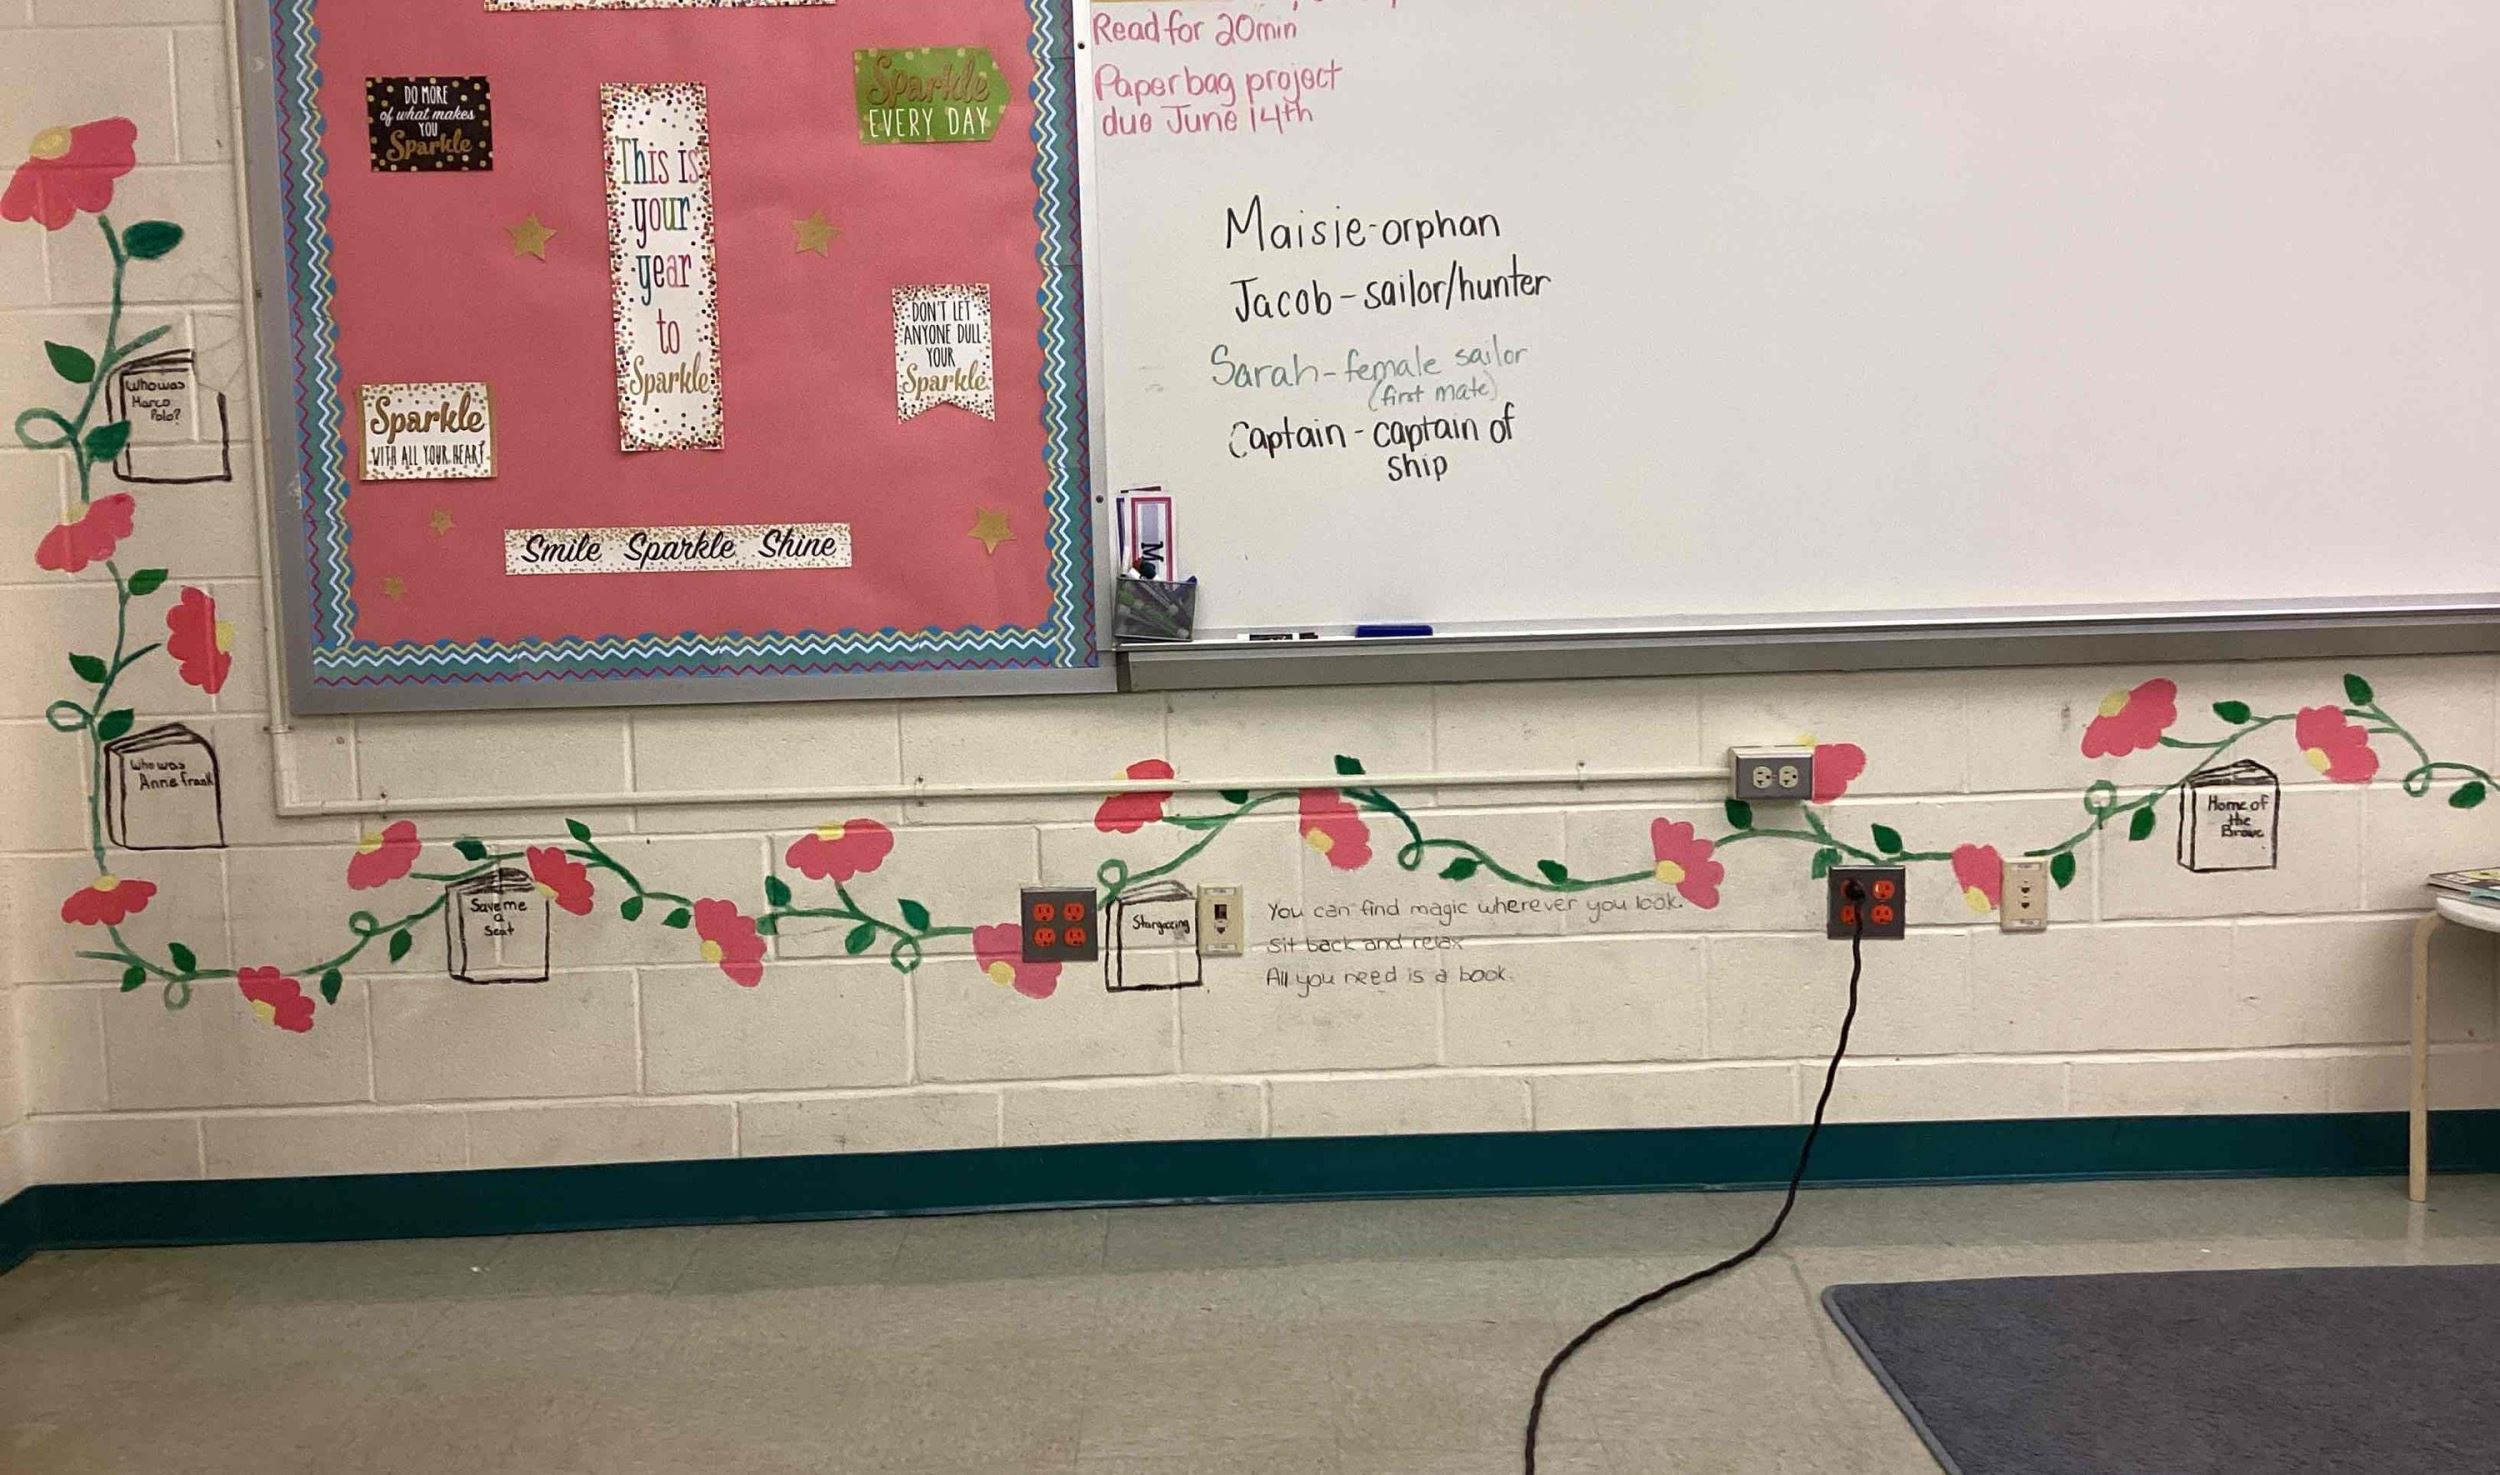 DO MORE
of what makes
YOU
Sparkle
Sparkle
EVERY DAY
This is
your
year
to
Sparkle
DON'T LET
ANYONE DULL
YOUR
Sparkle
Sparkle
WITH ALL YOUR HEART
Smile Sparkle Shine
Read for 20min
Paperbag project
due June 14th
Maisie-orphan
Jacob-sailor/hunter
Sarah-female sailor
(first mate)
Captain-captain of
ship
Who was
Marco
Polo?
Who was
Anne frank
Save me
a
Seat
Stargazing
You can find magic wherever you look.
Sit back and relax
All you need is a book.
Home of
the
Brave